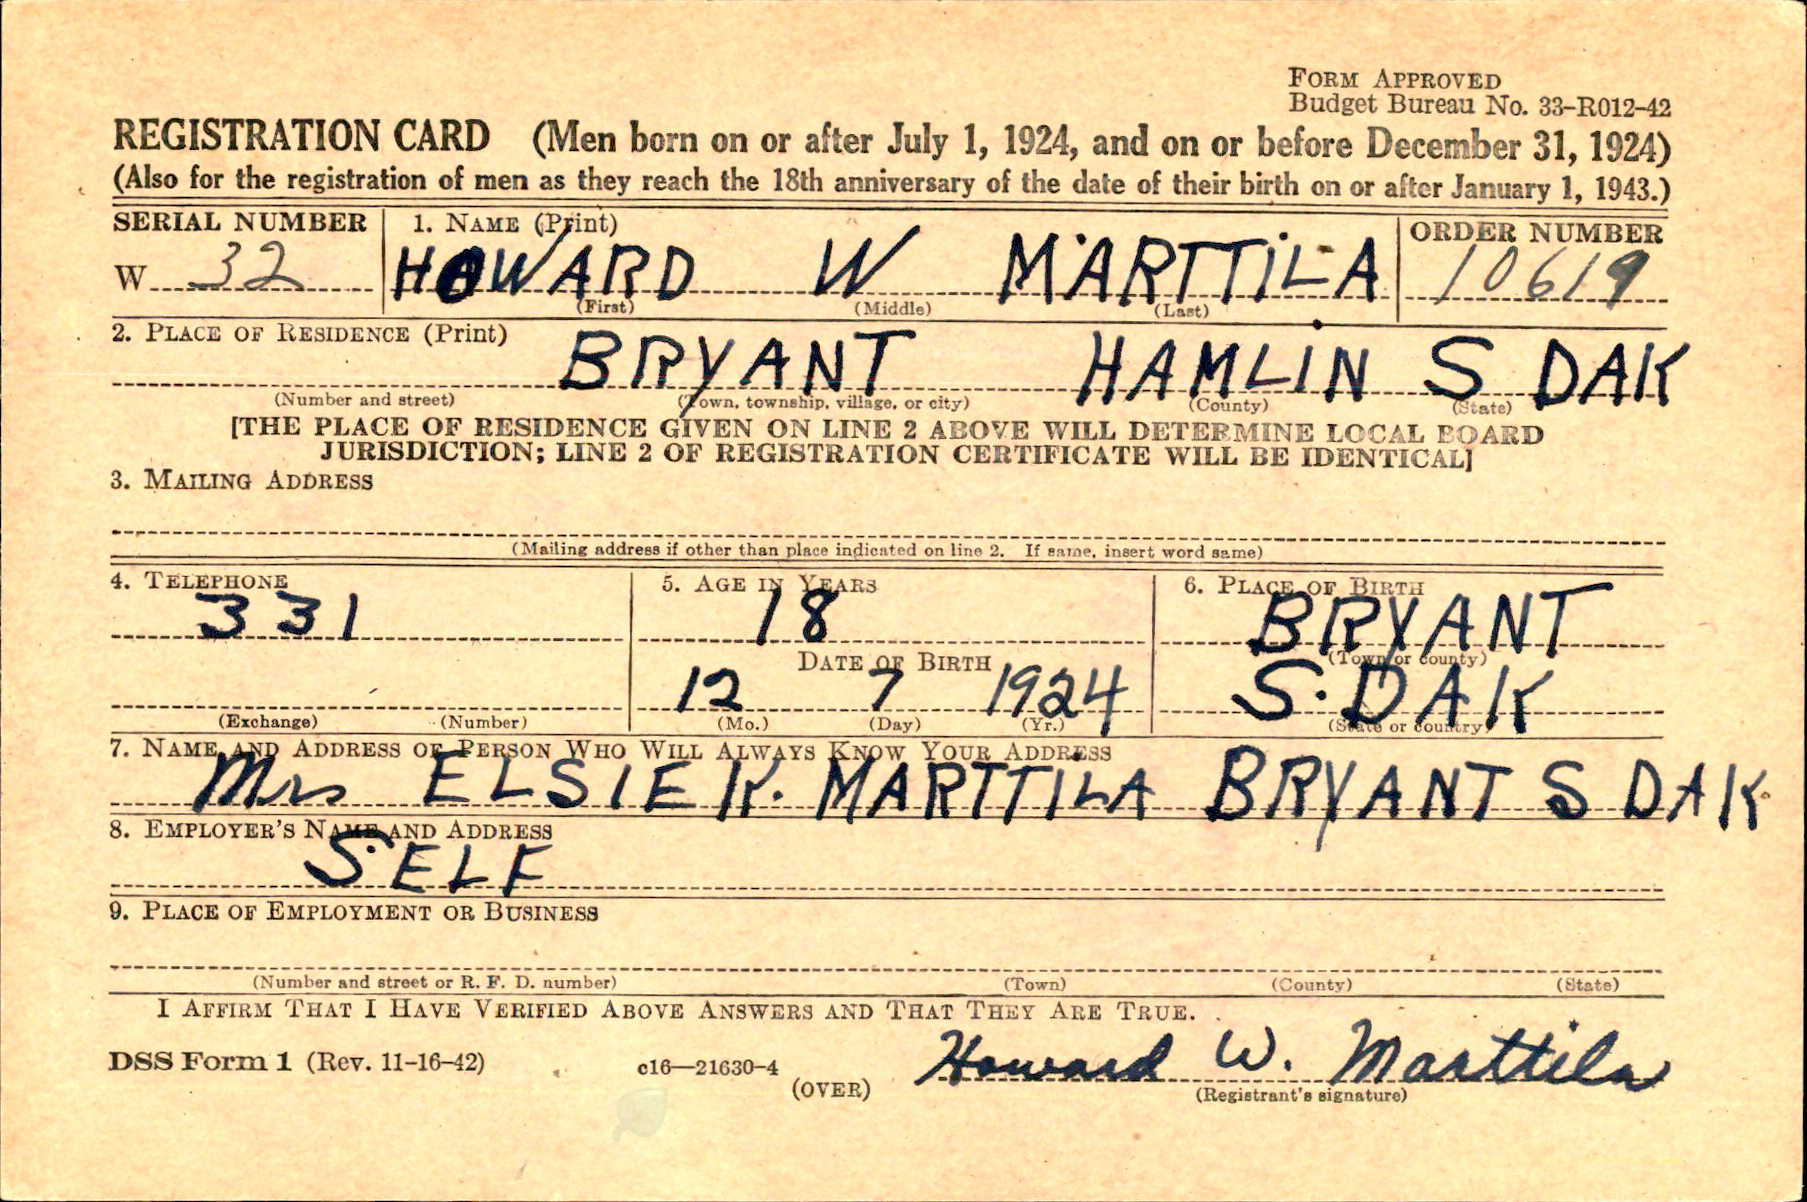 FORM APPROVED
Budget Bureau No. 33-R012-42
REGISTRATION CARD (Men born on or after July 1, 1924, and on or before December 31, 1924)
(Also for the registration of men as they reach the 18th anniversary of the date of their birth on or after January 1, 1943.)
SERIAL NUMBER 1. NAME (Print) ORDER NUMBER
W 32 HOWARD W MARTTILA 10619
(First) (Middle) (Last)
2. PLACE OF RESIDENCE (Print)
BRYANT HAMLIN S DAK
(Number and street) (Town, township, village, or city) (County) (State)
[THE PLACE OF RESIDENCE GIVEN ON LINE 2 ABOVE WILL DETERMINE LOCAL BOARD
JURISDICTION; LINE 2 OF REGISTRATION CERTIFICATE WILL BE IDENTICAL]
3. MAILING ADDRESS
(Mailing address if other than place indicated on line 2. If same, insert word same)
4. TELEPHONE 5. AGE IN YEARS 6. PLACE OF BIRTH
331 18 BRYANT
DATE OF BIRTH (Town or county)
12 7 1924 S. DAK
(Exchange) (Number) (Mo.) (Day) (Yr.) (State or country)
7. NAME AND ADDRESS OF PERSON WHO WILL ALWAYS KNOW YOUR ADDRESS
Mrs ELSIE K. MARTTILA BRYANT S DAK
8. EMPLOYER'S NAME AND ADDRESS
SELF
9. PLACE OF EMPLOYMENT OR BUSINESS
(Number and street or R. F. D. number) (Town) (County) (State)
I AFFIRM THAT I HAVE VERIFIED ABOVE ANSWERS AND THAT THEY ARE TRUE.
DSS Form 1 (Rev. 11-16-42) c16—21630-4 Howard W. Marttila
(OVER) (Registrant's signature)